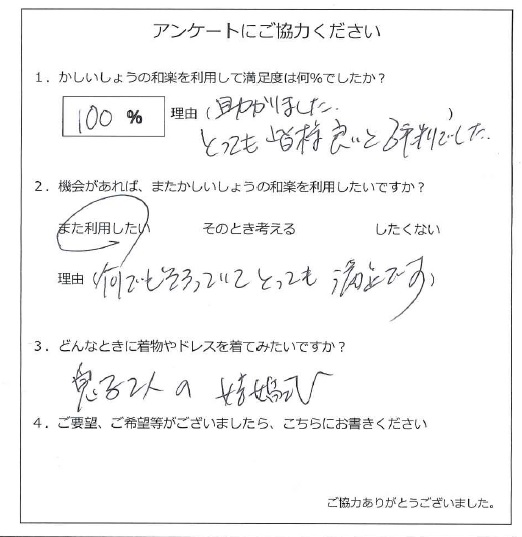 アンケートにご協力ください
1．かしいしょうの和楽を利用して満足度は何％でしたか？
100 ％ 理由（助かりました．
とっても皆様良いと評判でした．）
2．機会があれば、またかしいしょうの和楽を利用したいですか？
また利用したい そのとき考える したくない
理由（何でもそろっていてとっても満足です）
3．どんなときに着物やドレスを着てみたいですか？
息子2人の結婚式
4．ご要望、ご希望等がございましたら、こちらにお書きください
ご協力ありがとうございました。